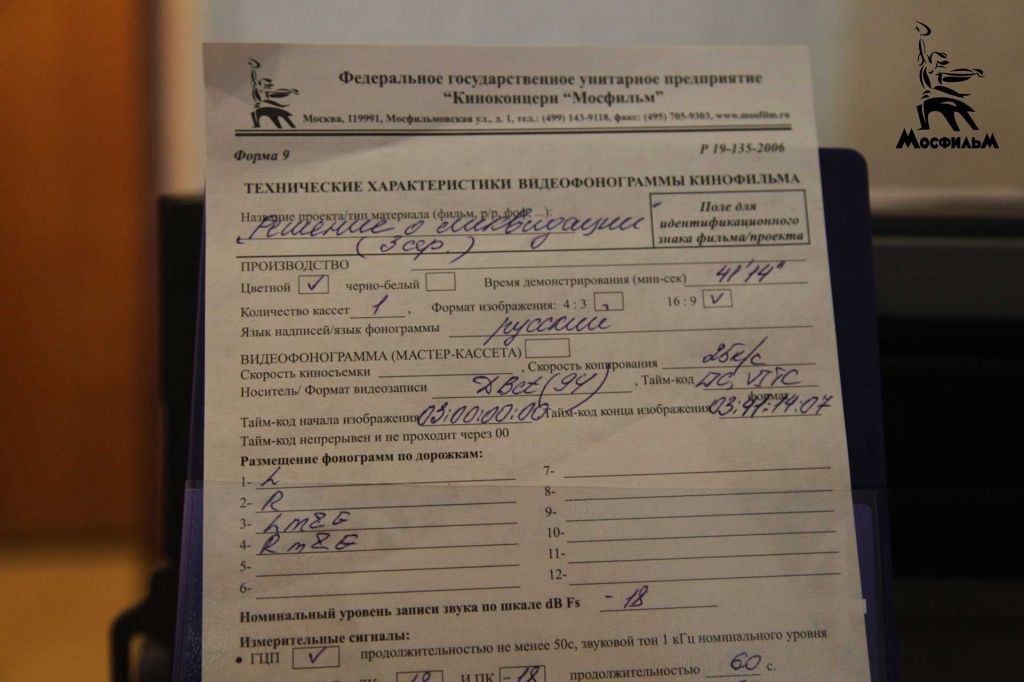 МОСФИЛЬМ
Федеральное государственное унитарное предприятие
“Киноконцерн “Мосфильм”
Москва, 119991, Мосфильмовская ул., д. 1, тел.: (499) 143-9118, факс: (495) 705-9303, www.mosfilm.ru
Форма 9
Р 19-135-2006
ТЕХНИЧЕСКИЕ ХАРАКТЕРИСТИКИ ВИДЕОФОНОГРАММЫ КИНОФИЛЬМА
Название проекта/тип материала (фильм, р/р, фоф, ...):
Решение о ликвидации
(3 сер.)
Поле для
идентификационного
знака фильма/проекта
ПРОИЗВОДСТВО
Цветной ✓ черно-белый Время демонстрирования (мин-сек) 41'14"
Количество кассет 1, Формат изображения: 4 : 3 16 : 9 ✓
Язык надписей/язык фонограммы русский
ВИДЕОФОНОГРАММА (МАСТЕР-КАССЕТА)
Скорость киносъемки , Скорость копирования 25к/с
Носитель/ Формат видеозаписи DBct (94) , Тайм-код VITC
формат
Тайм-код начала изображения 03:00:00:00 Тайм-код конца изображения 03:41:14:07
Тайм-код непрерывен и не проходит через 00
Размещение фонограмм по дорожкам:
1- L
2- R
3- L m&E
4- R m&E
5-
6-
7-
8-
9-
10-
11-
12-
Номинальный уровень записи звука по шкале dB Fs -18
Измерительные сигналы:
• ГЦП ✓ продолжительностью не менее 50с, звуковой тон 1 кГц номинального уровня
18 И ПК -18 продолжительностью 60 с.